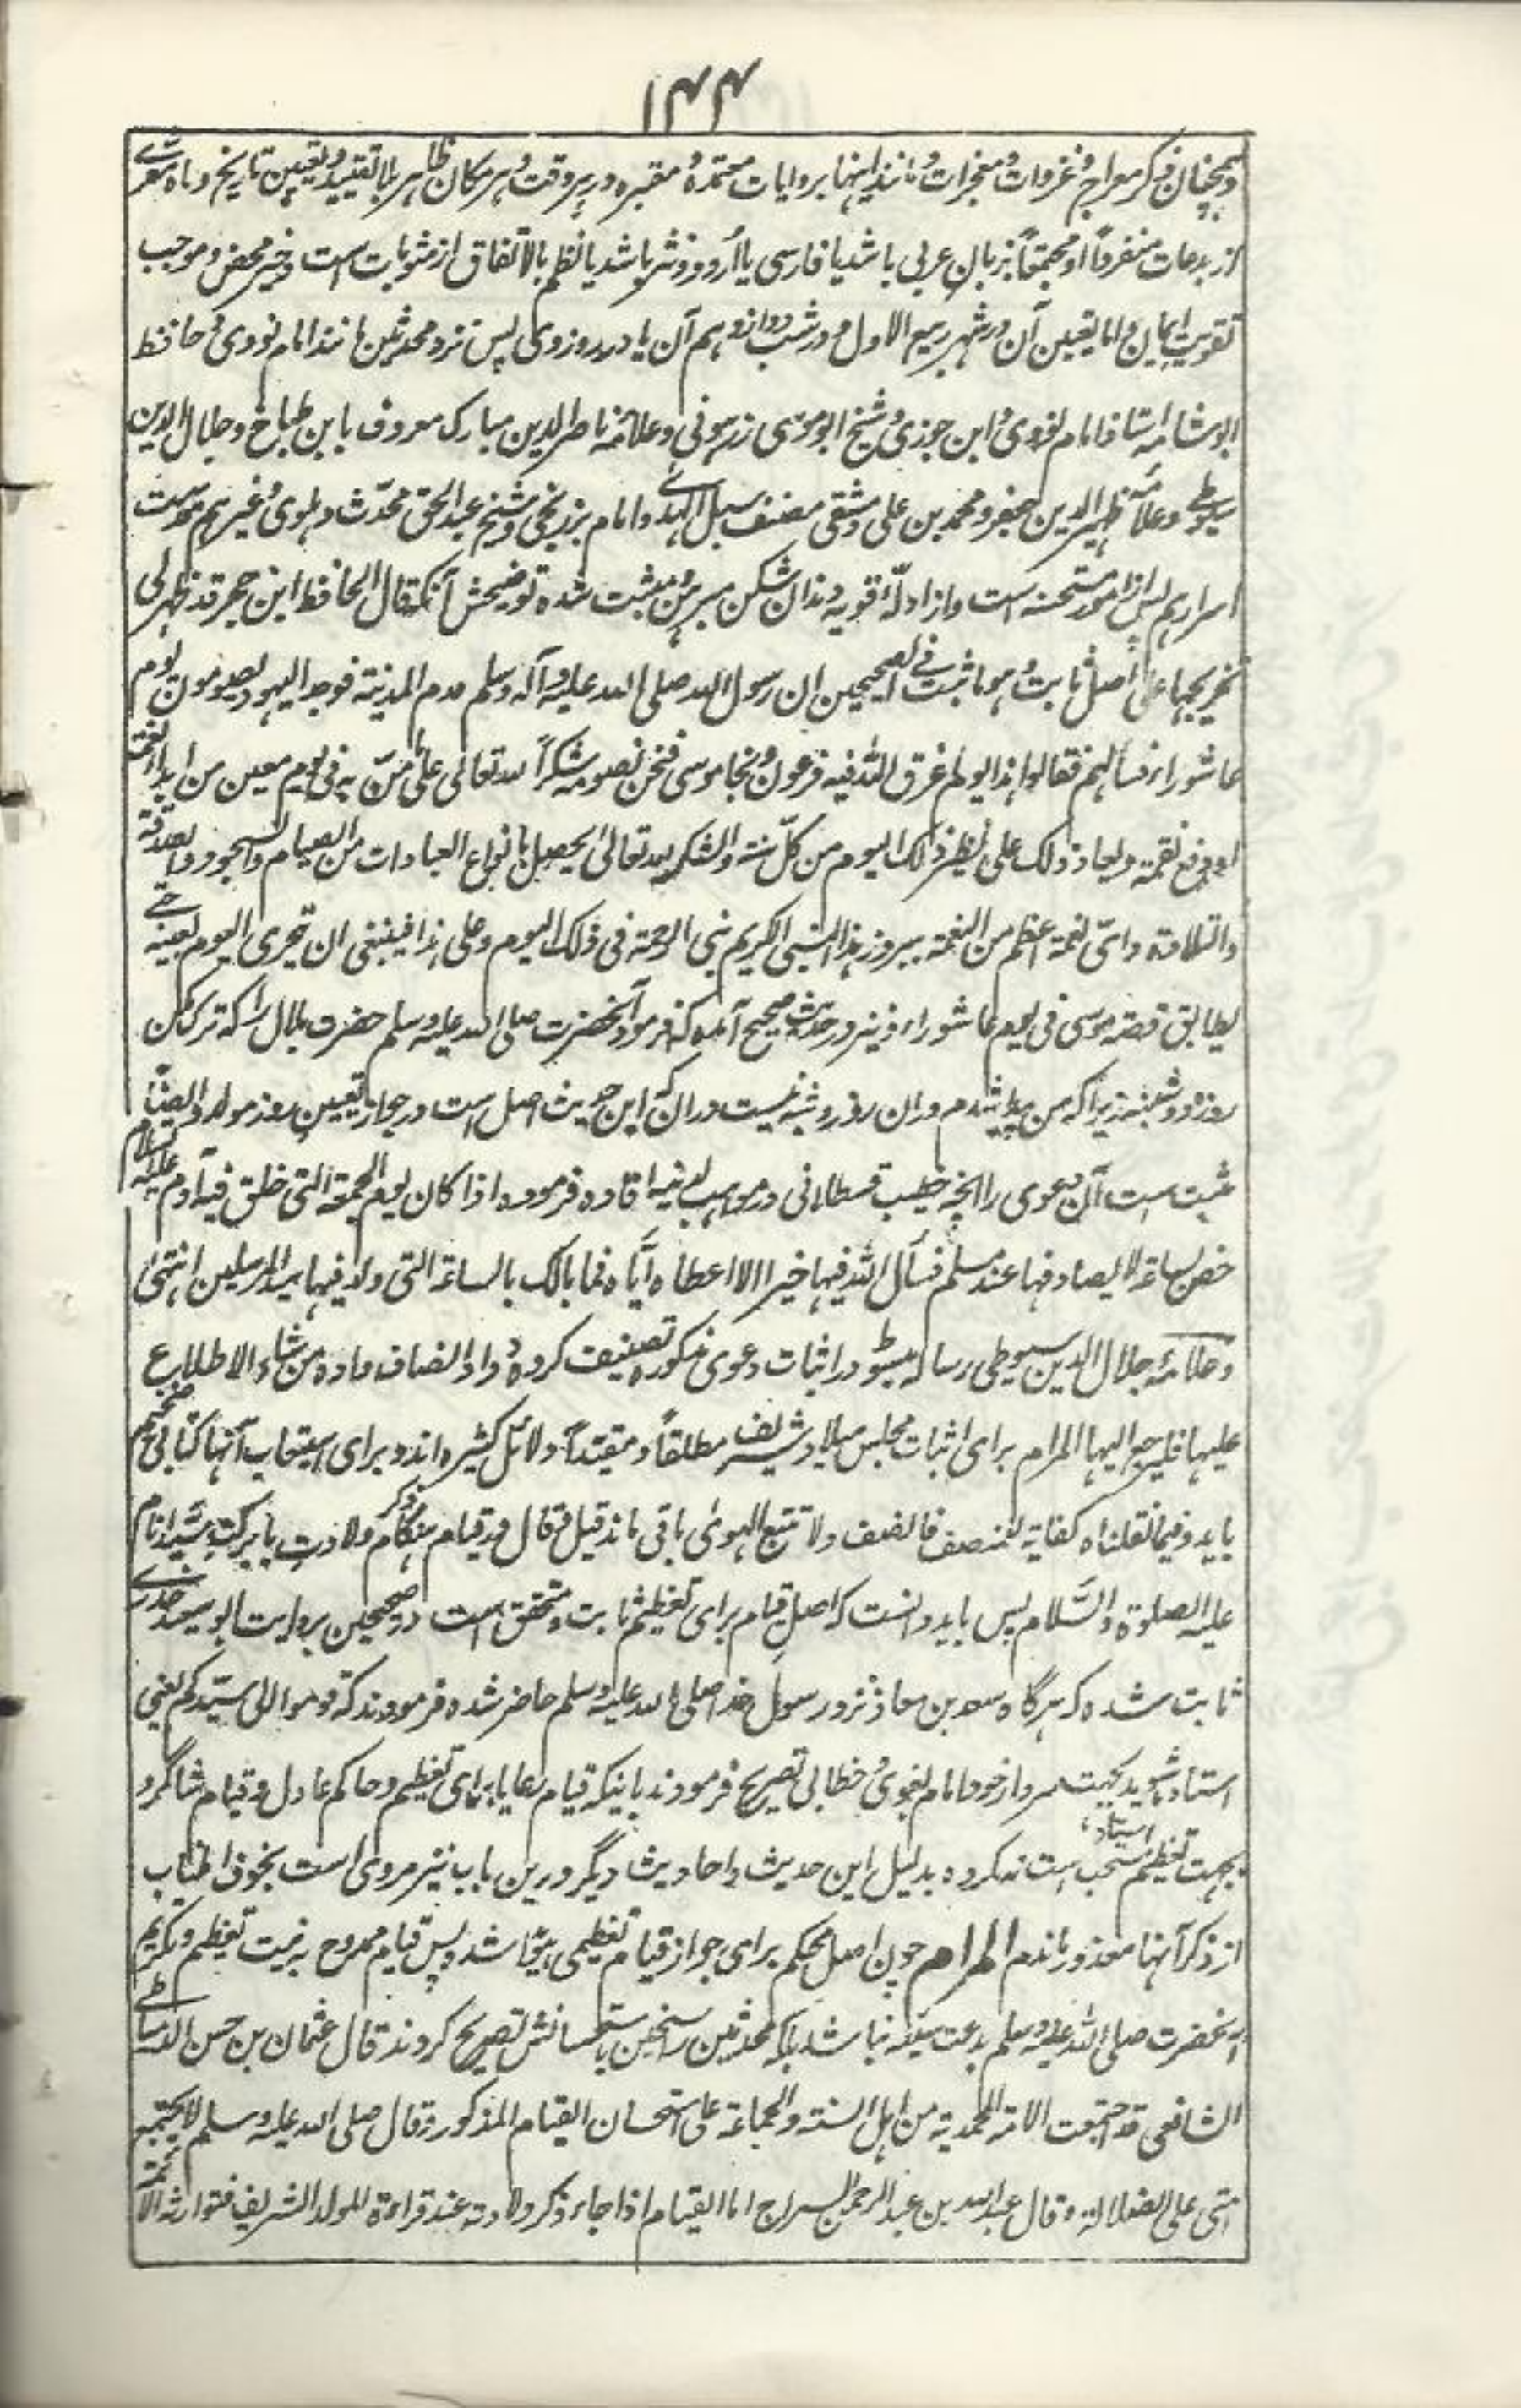 ۱۴۴
وہمچنان ذکر معراج و غزوات و معجزات و مانند اینہا بروایات معتمدہ و معتبرہ در ہر وقت و ہر مکان ظاہر بلا تقیید و تعیین تاریخ و ماہ معرے
از بدعات منفرداً او مجتمعاً بزبان عربی باشد یا فارسی یا اُردو و نثر باشد یا نظم بالاتفاق از مثوبات است و خیر محض و موجب
تقویت ایمان و اما تعیین آن در شہر ربیع الاول و در شب دوازدہم آن یا در روز وی پس نزد محدثین مانند امام نووی و حافظ
ابو شامہ استاذ امام نووی و ابن جوزی و شیخ ابو موسی زرہونی و علامہ ناصر الدین مبارک معروف بابن طباخ و جلال الدین
سیوطے و علامہ ظہیر الدین جعفر و محمد بن علی دمشقی مصنف سبل الہدےٰ و امام برزنجی و شیخ عبد الحق محدّث دہلوی و غیرہم قدست
اسرارہم پس از امور مستحسنہ است و از ادلّہٴ قویہ دندان شکن مبرہن و مثبت شدہ توضیحش آنکہ قال الحافظ ابن حجر قد ظہر لی
تخریجہا علی اصل ثابت و ہو ما ثبت فے الصحیحین ان رسول اللہ صلی اللہ علیہ و آلہ وسلم قدم المدینۃ فوجد الیہود یصومون یوم
عاشوراء فسألہم فقالوا ہذا یوم اغرق اللہ فیہ فرعون و نجا موسی فنحن نصومہ شکراً للہ تعالی علی ما منّ بہ فی یوم معین من ایداء نعمۃ
او دفع نقمۃ و یعاد ذلک علی نظیر ذلک الیوم من کلّ سنۃ والشکر للہ تعالیٰ یحصل بانواع العبادات من الصیام والسجود والصدقۃ
والتلاوۃ و ایّ نعمۃ اعظم من النعمۃ ببروز ہذا النبی الکریم نبی الرحمۃ فی ذلک الیوم و علی ہذا فینبغی ان تحری الیوم بعینہ حتے
یطابق قصۃ موسی فی یوم عاشوراء و نیز در حدیث صحیح آمدہ کہ فرمود آنحضرت صلی اللہ علیہ وسلم حضرت بلال را کہ ترک مکن
روزہ دوشنبہ زیرا کہ من پیدا شدم در ان روز و شبہ نیست در ان کہ این حدیث اصل است در جواز تعیین روز مولد و ایضاً
مثبت است آن دعوی را انچہ خطیب قسطلانی در مواہب لدنیہ افادہ فرمودہ اذا کان یوم الجمعۃ التی خلق فیہ آدم علیہ السلام
خص بساعۃ لا یصادفہا عند مسلم فسأل اللہ فیہا خیرا الا اعطاہ ایّاہ فما بالک بالساعۃ التی ولد فیہا سید المرسلین انتہیٰ
و علامہ جلال الدین سیوطی رسالہ مبسوط در اثبات دعوی مذکورہ تصنیف کردہ و داد انصاف دادہ من شاء الاطلاع
علیہا فلیرجع الیہا المرام برای اثبات مجلس میلاد شریف مطلقاً و مقیّداً دلائل کثیرہ اند و برای استیعاب آنہا کتابی ضخیم
باید و فیما نقلناہ کفایۃ للمنصف فانصف ولا تتبع الہویٰ باقی ماند قیل و قال در قیام ہنگام ذکر ولادت با برکت سیّد انام
علیہ الصلوۃ والسَّلام پس باید دانست کہ اصل قیام برای تعظیم ثابت و متحقق است در صحیحین بروایت ابو سعید خدرے
ثابت شدہ کہ ہرگاہ سعد بن معاذ نزد رسول خدا صلی اللہ علیہ وسلم حاضر شدہ فرمودند کہ قوموا الی سیّدکم یعنی
استادہ شوید بجہت سردار خود امام بغوی و خطابی تصریح فرمودند باینکہ قیام رعایا برای تعظیم و حاکم عادل و قیام شاگرد
بجہت تعظیم استاد، مستحب است نہ مکروہ بدلیل این حدیث و احادیث دیگر درین باب نیز مروی است بخوف اطناب
از ذکر آنہا معذور ماندم المرام چون اصل محکم برای جواز قیام تعظیمی پیدا شدہ پس قیام ممدوح بہ نیت تعظیم و تکریم
آنحضرت صلی اللہ علیہ وسلم بدعت سیّئہ نباشد بلکہ محدثین راسخین باستحسانش تصریح کردند قال عثمان بن حسن الدمیاطے
الشافعی قد اجتمعت الامۃ المحمدیۃ من اہل السنۃ والجماعۃ علی استحسان القیام المذکور و قال صلی اللہ علیہ وسلم لا یجتمع
امتی علی الضلالۃ و قال عبد اللہ بن عبد الرحمن السراج اما القیام اذا جاء ذکر ولادتہ عند قراءۃ المولد الشریف فتوارثہ الائمۃ